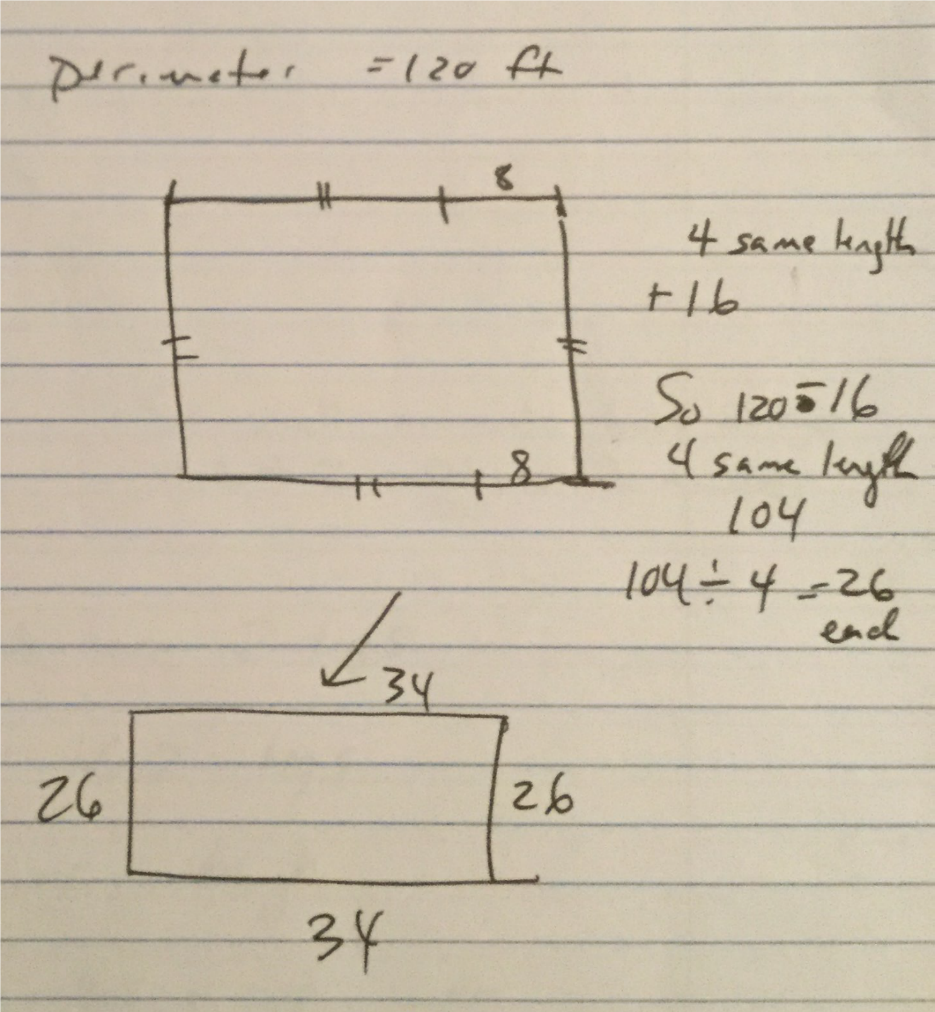 perimeter = 120 ft
8
4 same length
+ 16
So 120 - 16
4 same length
8
104
104 ÷ 4 = 26
each
34
26
26
34